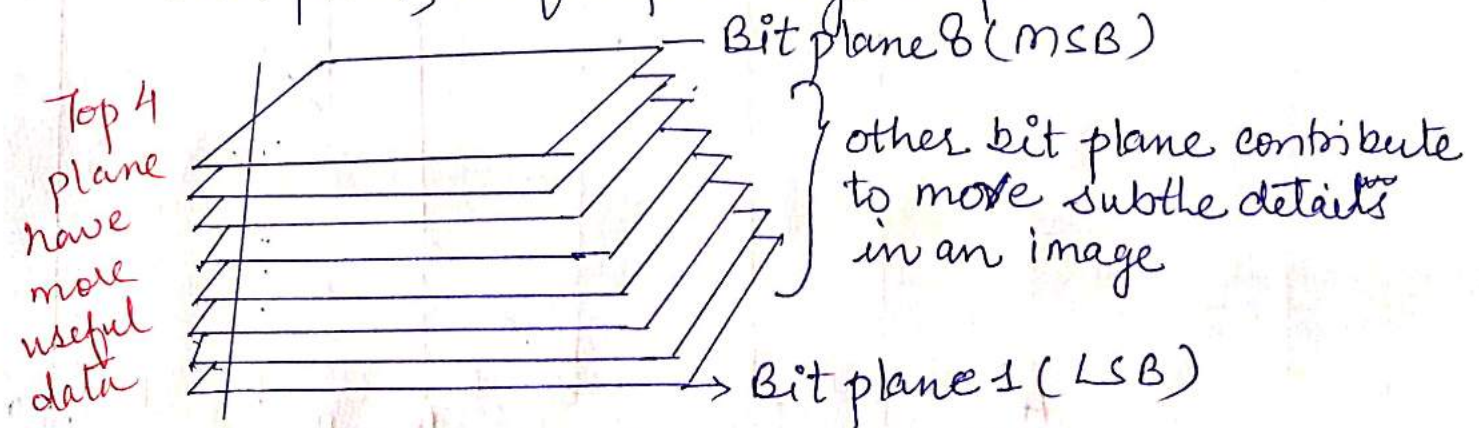 Bit plane 8 (MSB)
Top 4
plane
have
more
useful
data
other bit plane contribute
to more subthe details
in an image
Bit plane 1 (LSB)